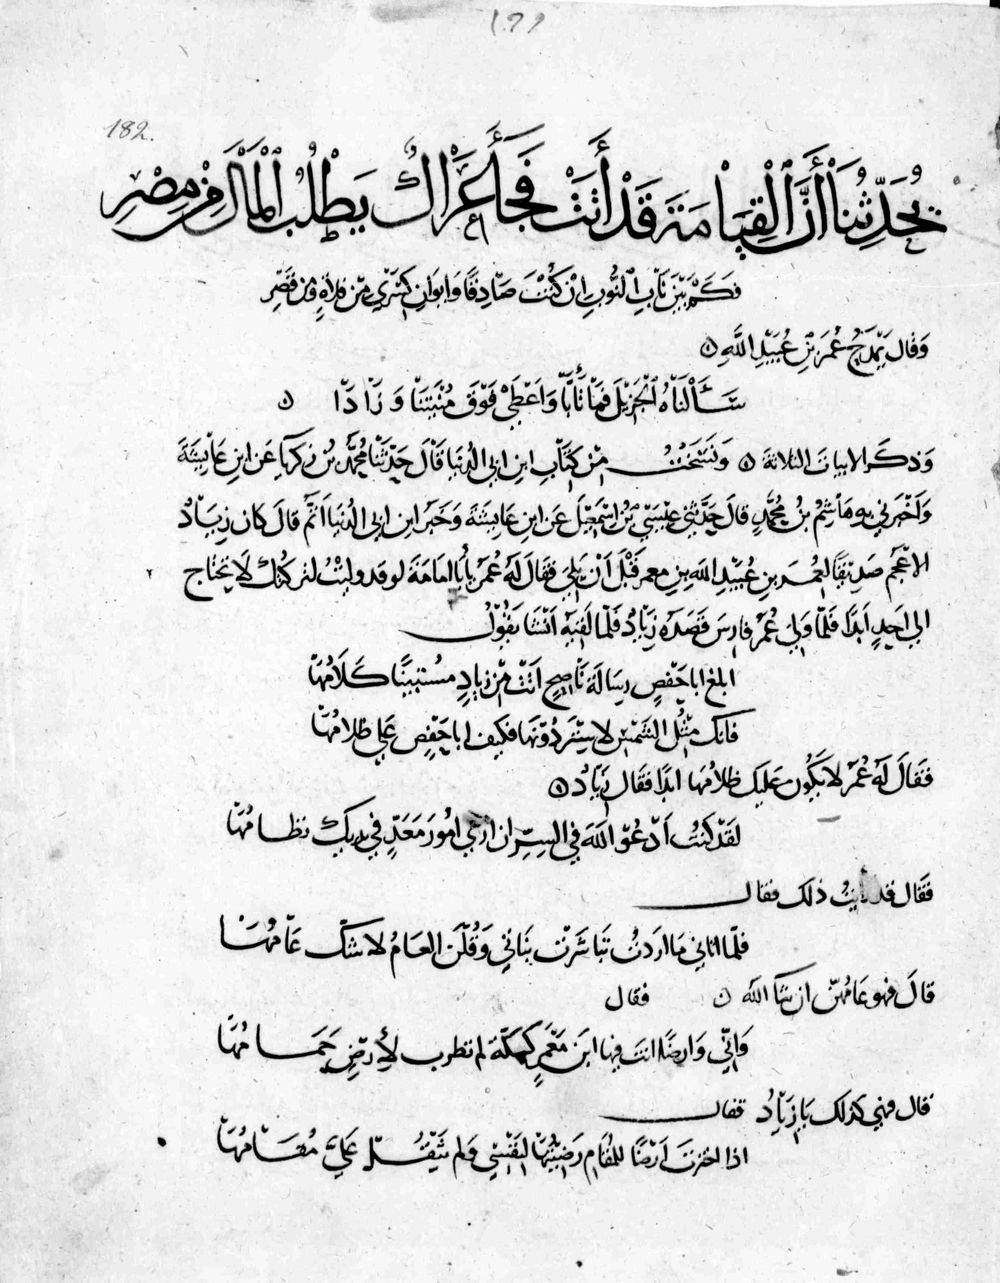 ١٦٩
182.
يُحَدِّثُنَا أَنَّ الْقِيَامَةَ قَدْ أَتَتْ فَجَأَ عَزَالٌ يَطْلُبُ الْمَالَ مِنْ مِصْرِ
فَكَمْ بَيْنَ بَابِ النُّوبِ إِنْ كُنْتَ صَادِقًا وَايوَانِ كِسْرَى مِنْ فَلَاةٍ وَمِنْ قَصْرِ
وَقَالَ يَمْدَحُ عُمَرَ بْنَ عُبَيْدِ اللَّهِ
سَأَلْنَاهُ الْجَزِيْلَ فَمَا تَأَبَّا وَأَعْطَى فَوْقَ مُنْيَتِنَا وَزَادَا
وَذَكَرَ الابيات الثلاثة وَنَسَخْتُ مِنْ كِتَابِ ابنِ ابي الدُنيَا قَالَ حَدَّثَنَا مُحَمَّدُ بْنُ زكريا عَنِ ابنِ عَائِشَةَ
وَاَخْبَرَني بِهِ هَاشِمُ بنُ مُحَمَّدٍ قالَ حَدَّثَني عِيْسَى بنُ اسْمَعِيْلَ عَنِ ابنِ عَائِشَةَ وَخَبَرُ ابنِ ابي الدُنيَا اَتَمُّ قالَ كانَ زِيَادٌ
الاعْجَمُ صَدِيْقًا لِعُمَرَ بنِ عُبَيْدِ اللَّهِ بنِ معمر قَبْلَ اَنْ يَلِيَ فَقَالَ لَهُ عُمَرُ يَا بَا امَامَةَ لو قد وليتُ لتركتُكَ لَا تحتاج
الى اَحَدٍ اَبَدًا فَلَمَّا وَلِيَ عُمَرُ فارسَ قَصَدَهُ زِيَادٌ فَلَمَّا لَقِيَهُ انْشَا يَقُوْلُ
ابلغ ابا حَفْصٍ رِسَالَةَ نَاصِحٍ اتَتْ مِنْ زِيَادٍ مُسْتَبِيْنًا كَلَامُهَا
فَانَّكَ مِثْلُ الشَّمْسِ لا سِتْرَ دُوْنَهَا فكيفَ ابا حَفْصٍ عَلَيَّ ظَلامُهَا
فَقَالَ لَهُ عُمَرُ لا يَكُونُ عَلَيكَ ظَلامُهَا ابَدًا فَقَالَ زِيَادٌ
لَقَدْ كنتُ اَدْعُوْ اللَّهَ في السِرِّ ان ارى امُورَ مَعَدٍّ في يديكَ نظامُهَا
فقَالَ قد رايتُ ذلك فقال
فلمّا اتاني مَا اردتُ تبَاشَرَتْ بَنَاتي وَقُلْنَ العَامُ لا شَكَّ عَامُهَا
قالَ فهو عَامُهُنَّ ان شا اللَّهُ فقال
وَاِنّي وَارضًا انتَ فيها ابنَ مَعْمَرٍ كمكةَ لم تطرب لأرْضٍ حَمامُهَا
قال فهي كذلك يَا زِيَادُ فقال
اذا اخترتَ ارضًا للمُقَامِ رَضِيْتُهَا لِنَفْسِي وَلم يَثْقُلْ عَلَيَّ مُقَامُهَا